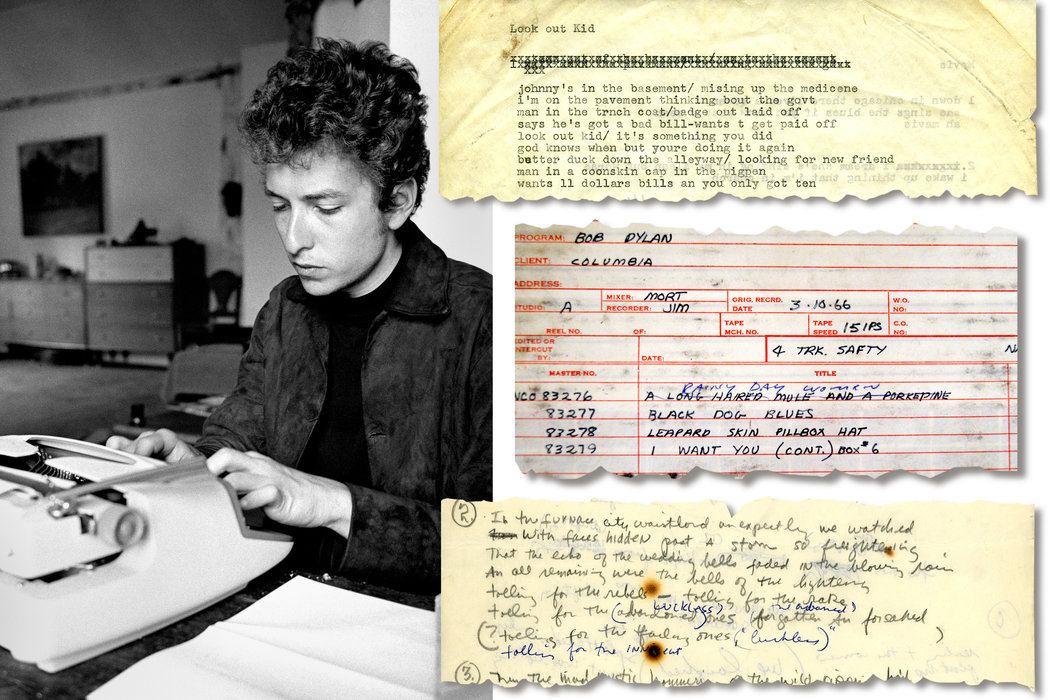 Look out Kid
johnny's in the basement/ mising up the medicene
i'm on the pavement thinking bout the govt
man in the trnch coat/badge out laid off
says he's got a bad bill-wants t get paid off
look out kid/ it's something you did
god knows when but youre doing it again
better duck down the alleyway/ looking for new friend
man in a coonskin cap in the pigpen
wants 11 dollars bills an you only got ten
PROGRAM: BOB DYLAN
CLIENT: COLUMBIA
ADDRESS:
STUDIO: A MIXER: MORT ORIG. RECRD. DATE 3.10.66 W.O. NO:
RECORDER: JIM
REEL NO. OF: TAPE MCH. NO. TAPE SPEED 15 IPS C.O. NO:
EDITED OR INTERCUT BY: DATE: 4 TRK. SAFTY
MASTER NO. TITLE
RAINY DAY WOMEN
NCO 83276 A LONG HAIRED MULE AND A PORKEPINE
83277 BLACK DOG BLUES
83278 LEAPARD SKIN PILLBOX HAT
83279 I WANT YOU (CONT.) BOX #6
2. In the furnace city unexpectly we watched
With faces hidden past a storm so frightening
That the echo of the wedding bells faded in the blowing rain
An all remaining were the bells of the lightening
tolling for the rebel – tolling for the rake
tolling for the (luckless) (the abandoned)
(abandoned) ones forgotten an forsaked
(? tolling for the ones ("luckless)"
tolling for the innocent
3. the mad mystic hammering the wild